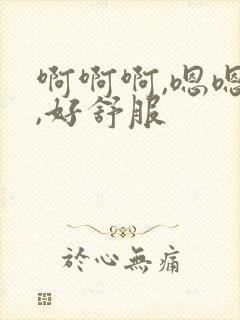 啊啊啊,嗯嗯
,好舒服
於心無痛